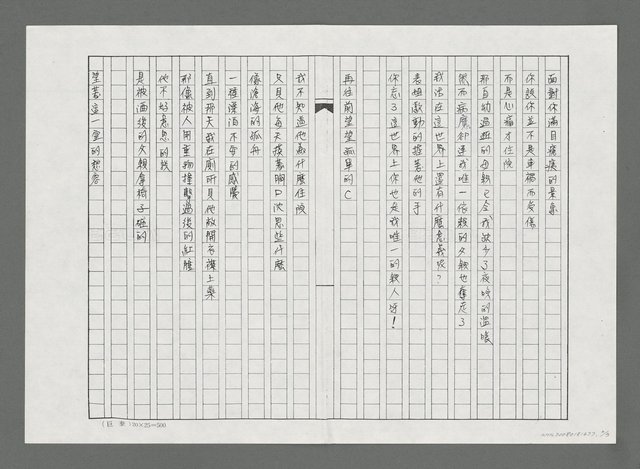 面對你滿目瘡痍的景象
你說你並不是車禍而受傷
而是心痛才住院
那自幼過逝的母親已令我缺少了夜晚的溫暖
然而病魔卻連我唯一依賴的父親也奪走了
我活在這世界上還有什麼意義呢？
表姐激動的搖著他的手
你忘了這世界上你也是我唯一的親人呀！
再往前望望孤單的C
我不知道他為什麼住院
只見他每天摸著胸口沈思些什麼
像滄海的孤舟
一種漂泊不安的感覺
直到那天我在廁所見他敞開衣襟上藥
那像被人用重物撞擊過後的紅腫
他不好意思的說
是被酒後的父親拿椅子砸的
望著這一室的愁容
20×25=500